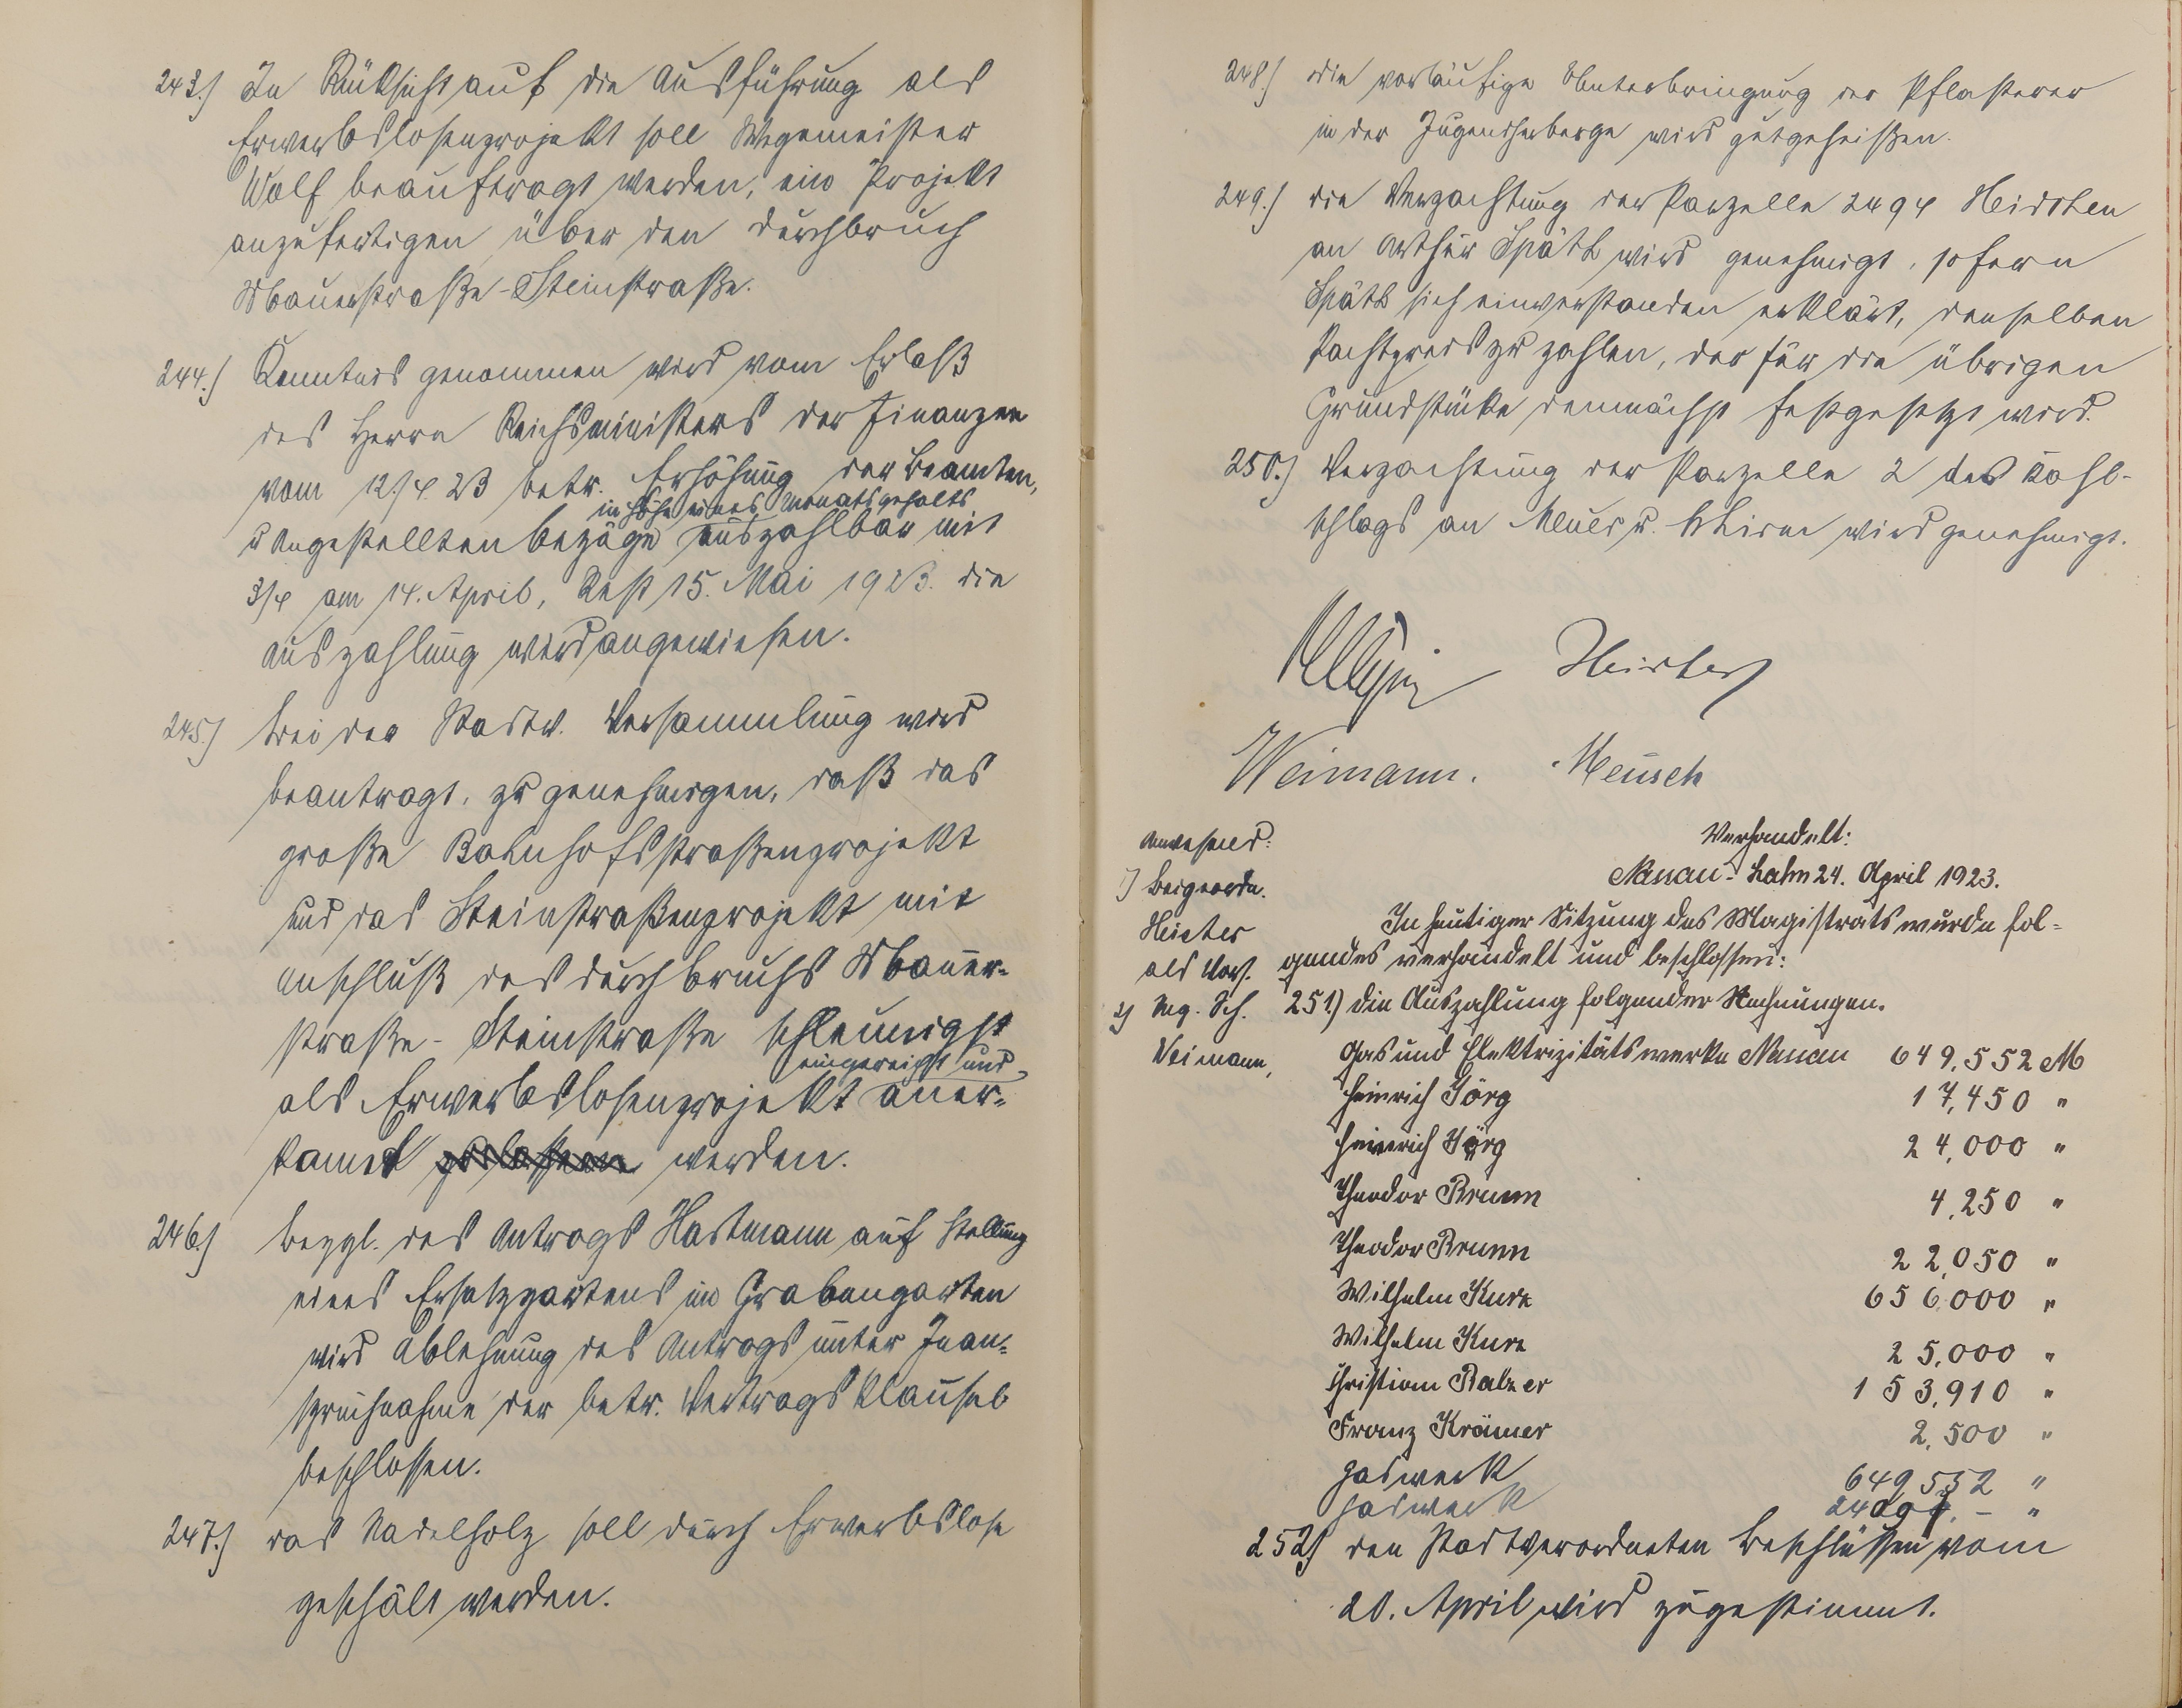 243.) In Rücksicht auf die Ausführung als
Erwerbslosenprojekt soll Wegemeister
Wolf beauftragt werden, ein Projekt
anzufertigen über den Durchbruch
Mauerstraße-Steinstraße.
244.) Kenntnis genommen wird vom Erlaß
des Herrn Reichsministers der Finanzen
vom 12/4 23 betr. Erhöhung der Beamten,
in Höhe eines Monatsgehalts
u Angestellten bezüge auszahlbar mit
3/4 am 14. April, Rest 15. Mai 1923. die
Auszahlung wird angewiesen.
245.) Bei der Stadtv. Versammlung wird
beantragt, zu genehmigen, daß das
große Bahnhofsstraßenprojekt
und das Steinstraßenprojekt mit
Anschluß des Durchbruchs Mauer-
straße-Steinstraße schleunigst
eingereicht und
als Erwerbslosenprojekt aner-
kannt werden.
246.) Bezgl. des Antrags Hartmann auf Stellung
eines Ersatzgartens im Grabengarten
wird Ablehnung des Antrags unter Inan-
spruchnahme der betr. Vertragsklausel
beschlossen.
247.) das Nadelholz soll durch Erwerbslose
geschält werden.
248.) die vorläufige Unterbringung der Pflasterer
in der Jugendherberge wird gutgeheißen.
249.) die Verpachtung der Parzelle 2494
an Arthur Späth wird genehmigt, sofern
Späth sich einverstanden erklärt, denselben
Pachtpreis zu zahlen, der für die übrigen
Grundstücke demnächst festgesetzt wird.
250.) Verpachtung der Parzelle 2 des Kahl-
schlags an wird genehmigt.
Weimann. Meusch
Anwesend: Verhandelt:
1) Beigeordn. Nassau-Lahn 24. April 1923.
In heutiger Sitzung des Magistrats wurde fol-
als Vors. gendes verhandelt und beschlossen:
2) Mg. Sch. 251.) die Auszahlung folgender Rechnungen.
Weimann, Gas und Elektrizitätswerke Nassau 649.552 M
Heinrich Jörg 17,450 "
Heinrich Jörg 24,000 "
Theodor Brunn 4,250 "
Theodor Brunn 22,050 "
Wilhelm Kurz 656,000 "
Wilhelm Kurz 25,000 "
Christian Balzer 153,910 "
Franz Krämer 2,500 "
Gaswerk 649 552 "
Gaswerk "
252) den Stadtverordneten Beschlüssen vom
20. April wird zugestimmt.